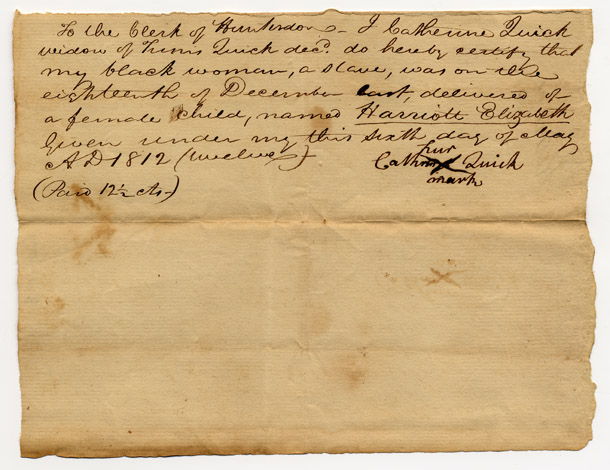 To the Clerk of Hunterdon – I Catherine Quick
widow of Tunis Quick decd. do hereby certify that
my black woman, a slave, was on the
eighteenth of December last, delivered of
a female child, named Harriott Elizabeth
Given under my this sixth day of May
A D 1812 (twelve)
her
Catherine X Quick
mark
(Paid 12½ cts –)